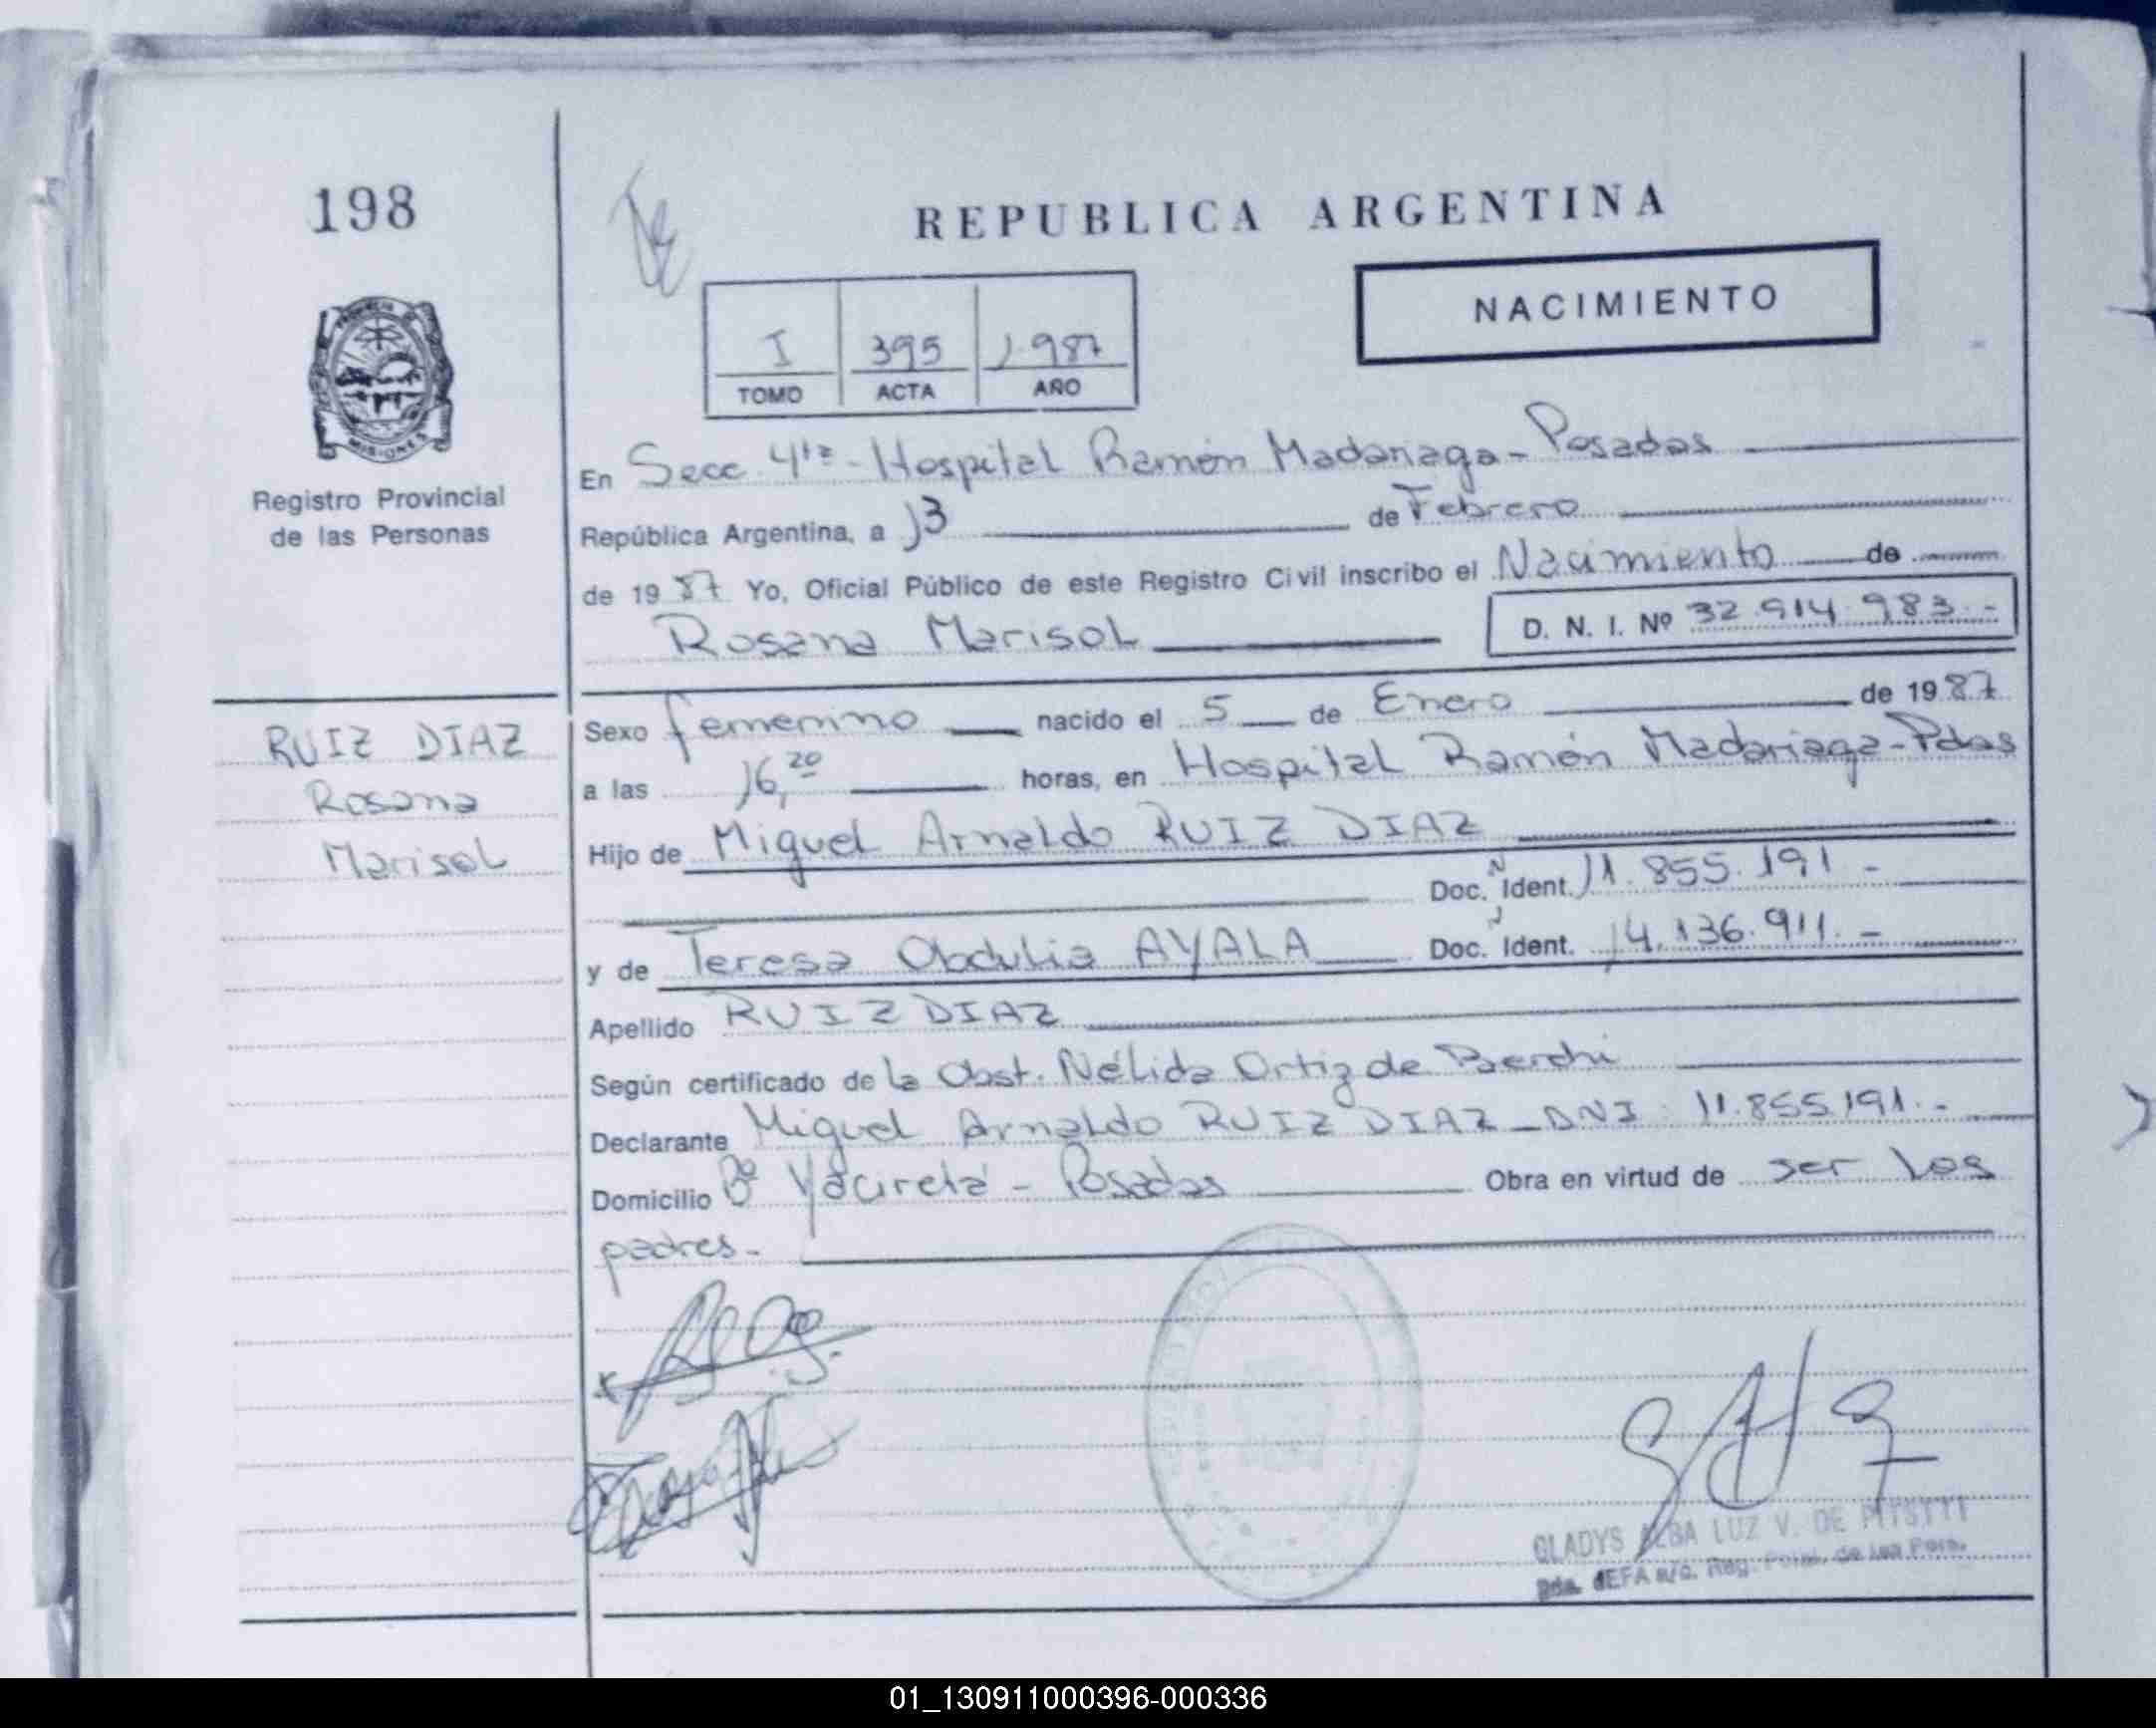 198
REPUBLICA ARGENTINA
NACIMIENTO
I 395 1.987
TOMO ACTA AÑO
MISIONES
Registro Provincial
de las Personas
En Secc. 4ta - Hospital Ramón Madariaga - Posadas
República Argentina, a 13 de Febrero
de 1987 Yo, Oficial Público de este Registro Civil inscribo el Nacimiento de
Rosana Marisol D. N. I. Nº 32.914.983.-
RUIZ DIAZ
Rosana
Marisol
Sexo femenino nacido el 5 de Enero de 1987
a las 16,20 horas, en Hospital Ramón Madariaga - Pdas
Hijo de Miguel Arnaldo RUIZ DIAZ
Doc. Ident. 11.855.191 -
y de Teresa Obdulia AYALA Doc. Ident. 14.136.911. -
Apellido RUIZ DIAZ
Según certificado de la Obst. Nélida Ortiz de
Declarante Miguel Arnaldo RUIZ DIAZ - DNI: 11.855.191.-
Domicilio Bº Yacireta - Posadas Obra en virtud de ser los
padres.-
GLADYS ALBA LUZ V. DE
JEFA a/c. Reg. de las Pers.
01_130911000396-000336